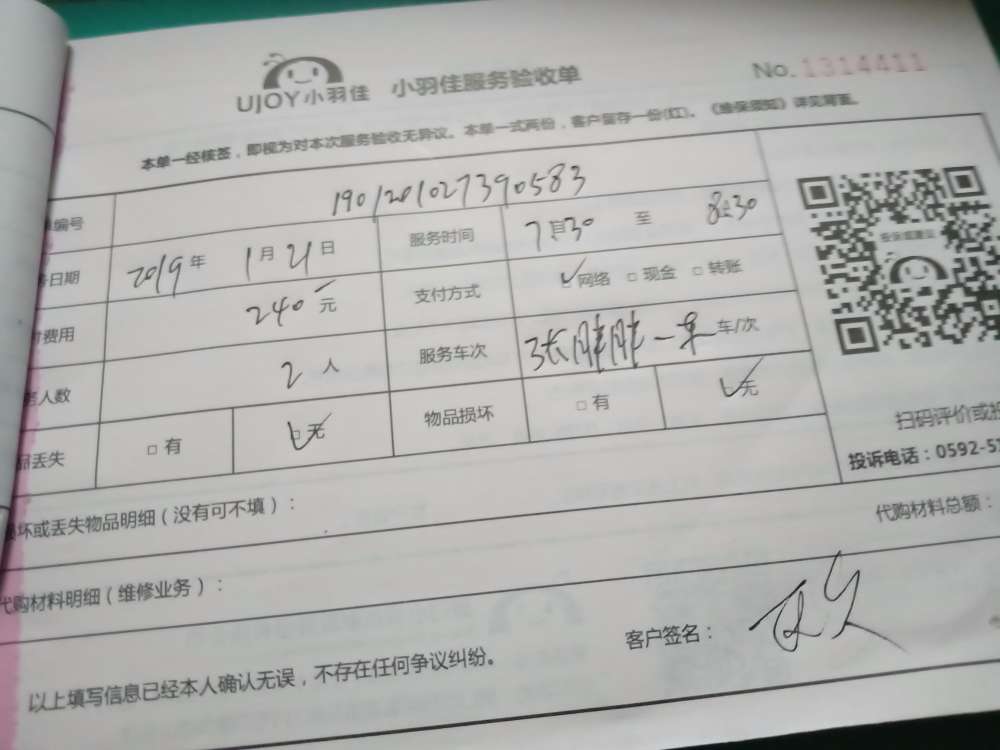 UJOY小羽佳 小羽佳服务验收单 No.1314411
本单一经核签，即视为对本次服务验收无异议。本单一式两份，客户留存一份(红)。《维保须知》详见背面。
编号 190120102739 0583
日期 2019年 1月 21日 服务时间 7:30 至 8:30
费用 240元 支付方式 网络 □现金 □转账
人数 2人 服务车次 张胖胖一车 车/次
丢失 □有 无 物品损坏 □有 无
扫码评价或投
投诉电话：0592-5
坏或丢失物品明细（没有可不填）：
代购材料总额：
代购材料明细（维修业务）：
客户签名：
以上填写信息已经本人确认无误，不存在任何争议纠纷。